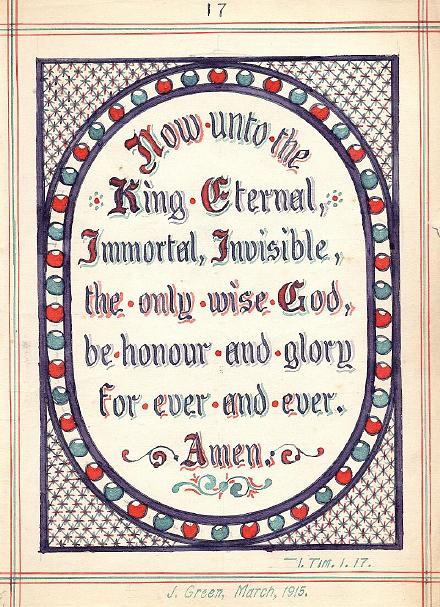 17
Now·unto·the
King·Eternal,
Immortal, Invisible,
the·only·wise·God,
be·honour·and·glory
for·ever·and·ever.
Amen.
1. TIM. 1. 17.
J. Green, March, 1915.